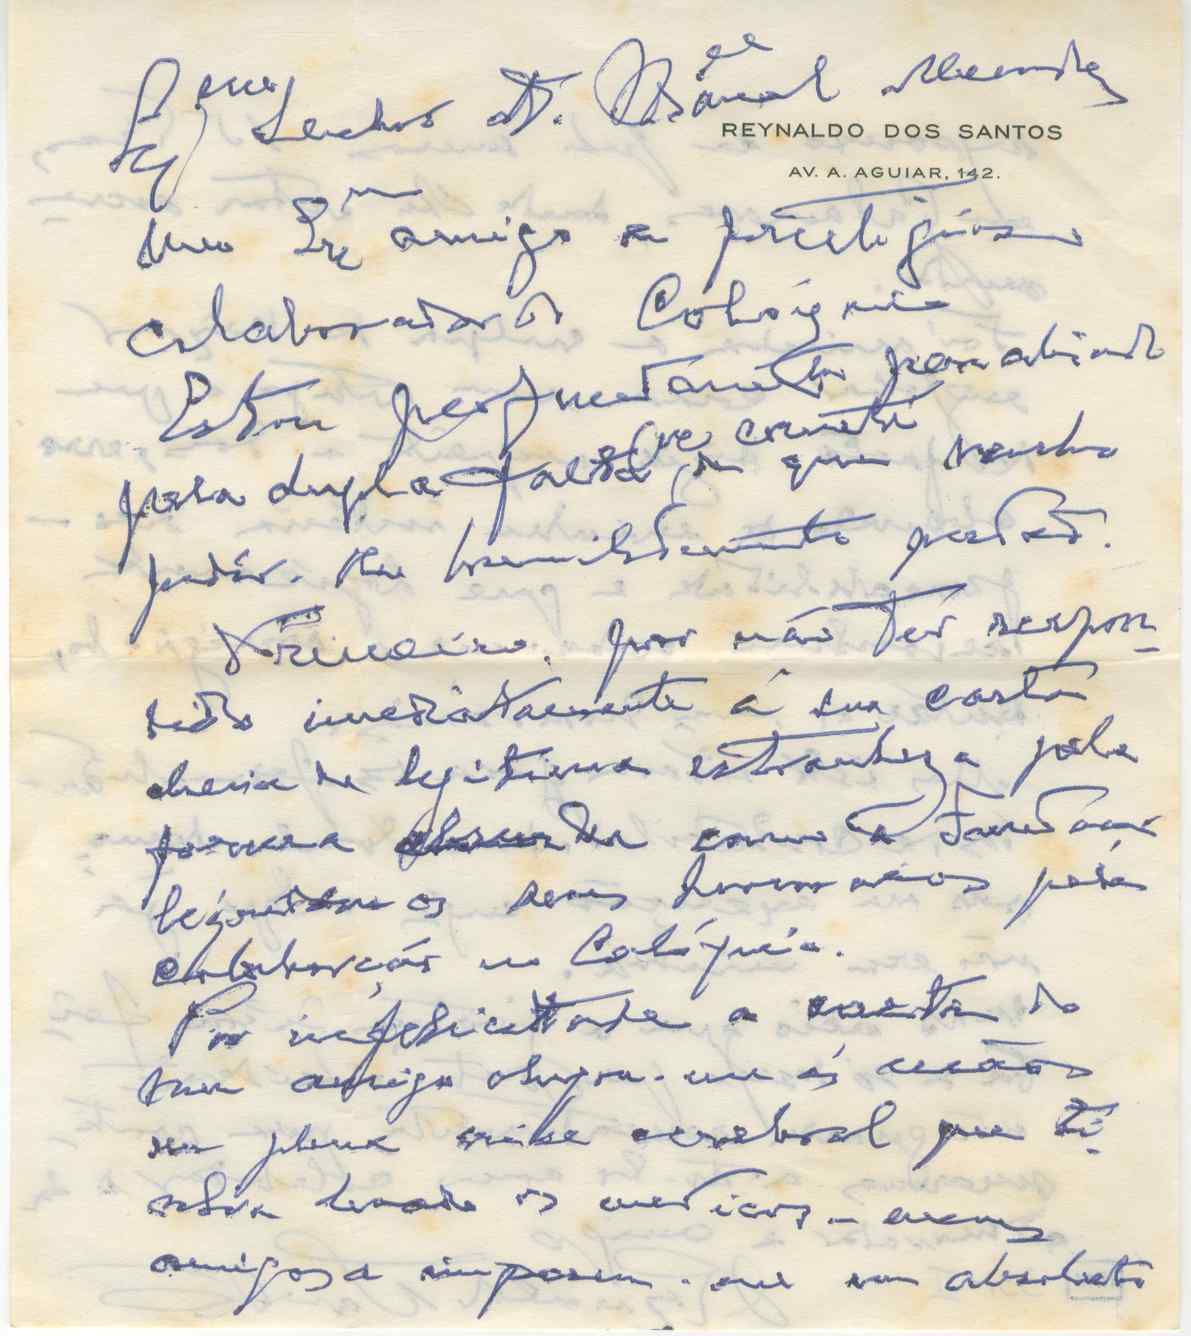 Exmo Senhor Dr. Manuel Mendes
REYNALDO DOS SANTOS
AV. A. AGUIAR, 142.
Meu Exmo amigo e prestigioso
colaborador do Colóquio
Estou profundamente penalizado
pela dupla falta que cometi
e de que venho
pedir-lhe humildemente perdão.
Primeiro, por não ter respon-
dido imediatamente á sua carta
cheia de legítima estranheza pela
forma como a Fundação
os seus honorários pela
colaboração no Colóquio.
Por infelicidade a carta do
meu amigo chegou-me ás mãos
em plena crise cerebral que
levado os medicos - meus
amigos a imporem-me um absoluto